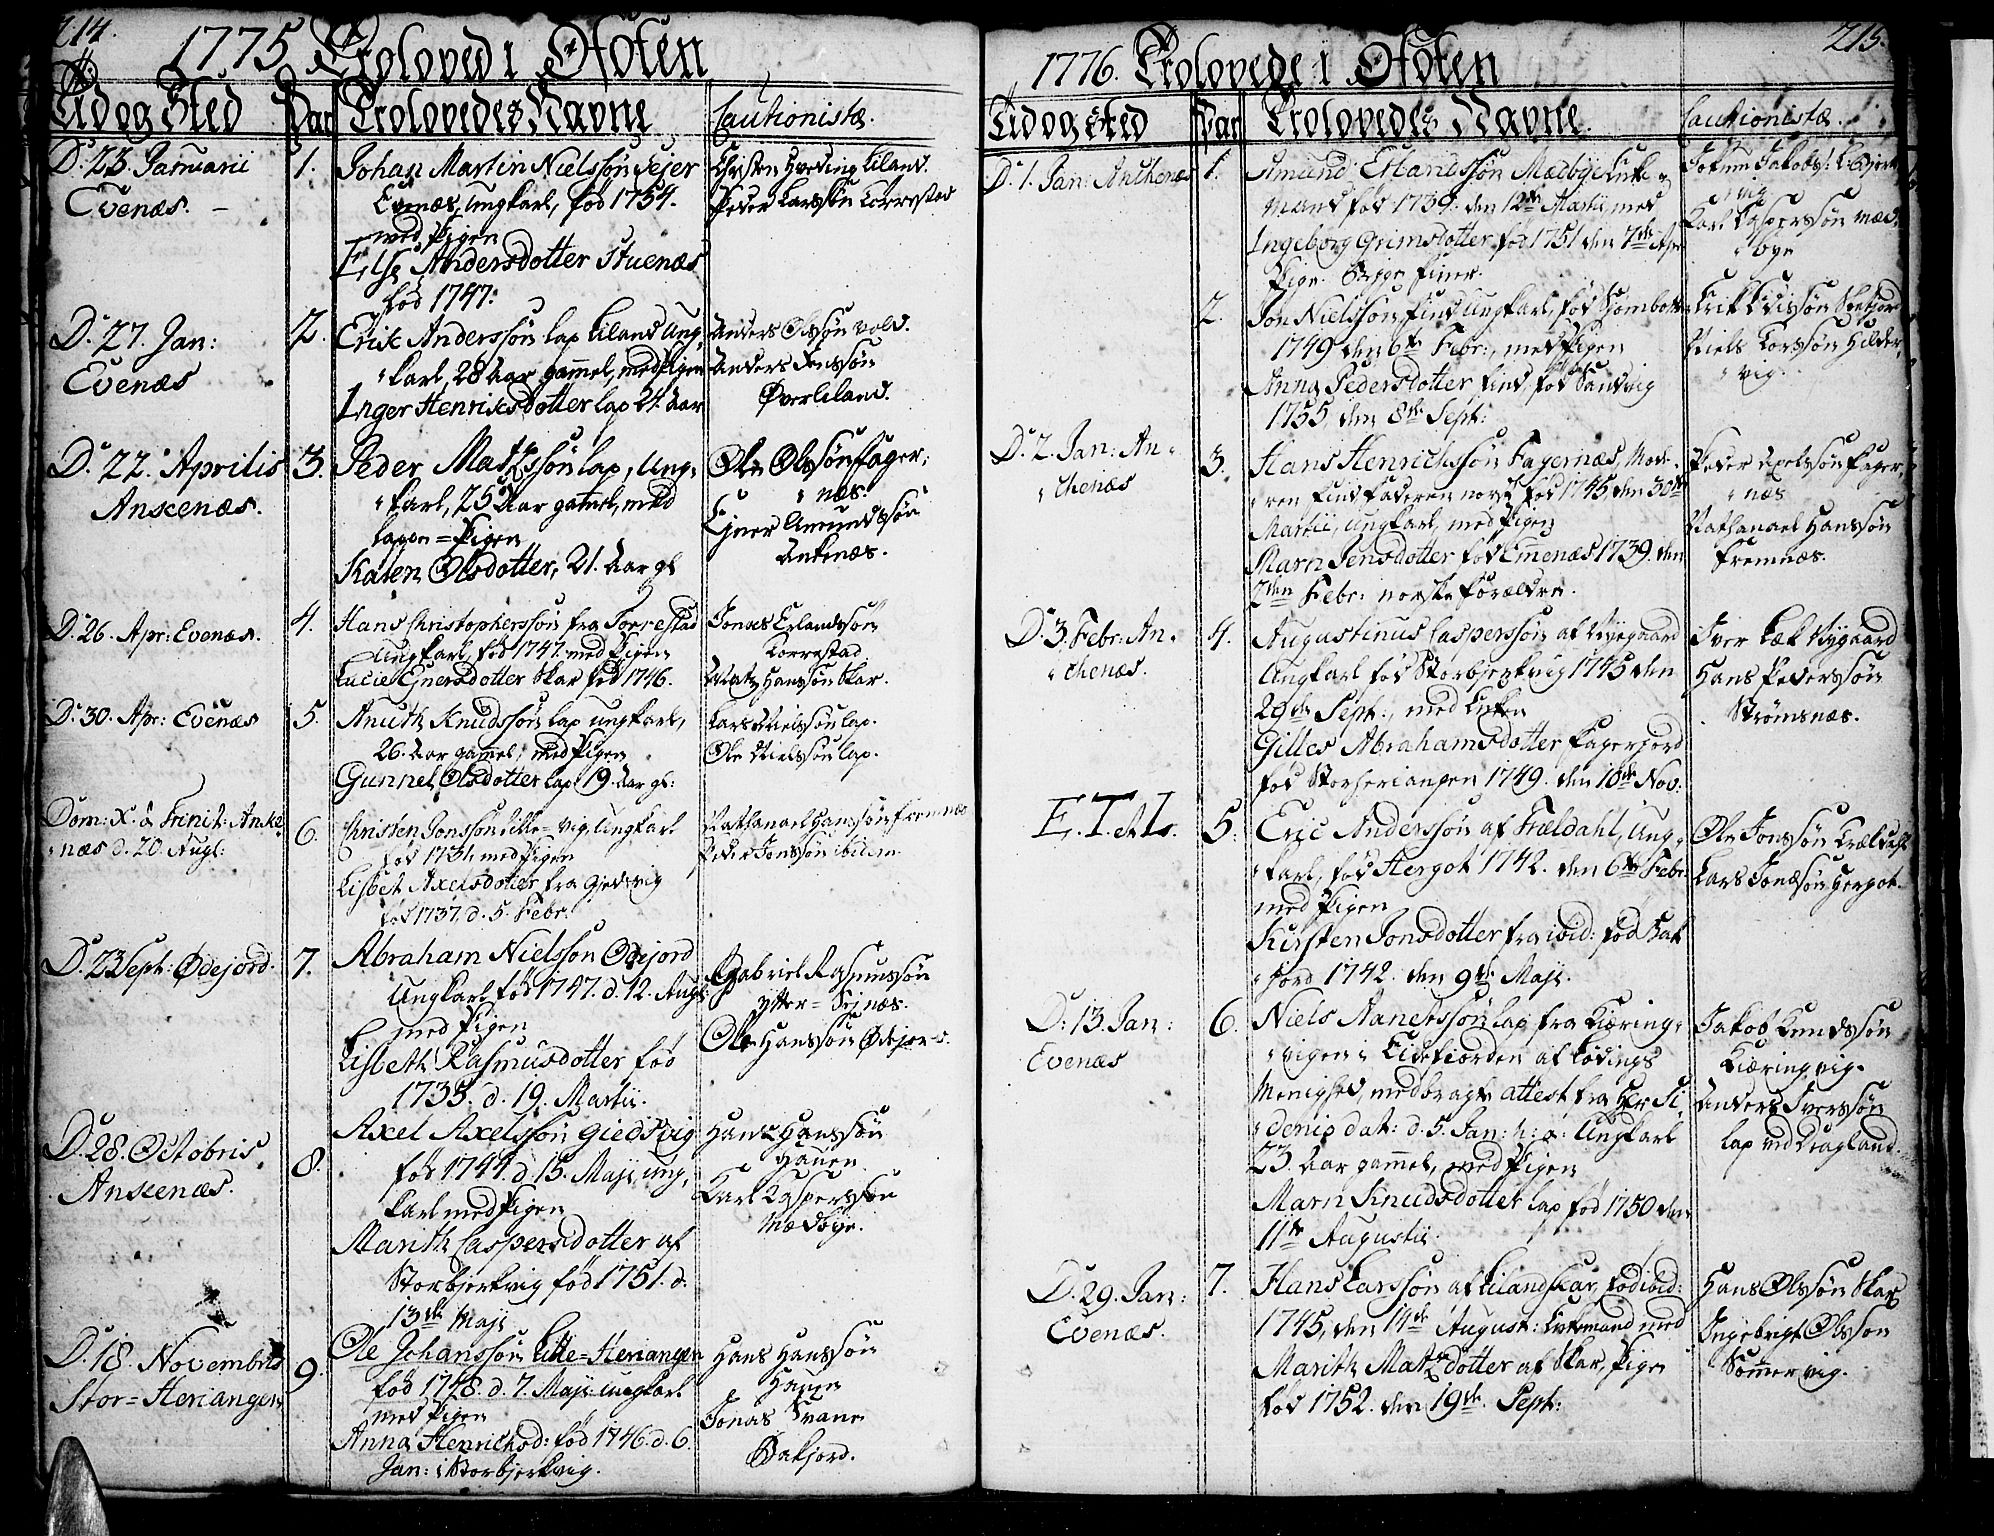 214.
1775 Trolovede i Ofoten
Tid og Sted
Par
Trolovedes Navne
Cautionistæ.
D. 23. Januarii
Evenæs.
1.
Johan Martin Nielssøn Jejer
Evenæs, ungkarl, fød 1754.
med Pigen
Else Andersdotter Stuenæs
fød 1747.
Christen Hveding Liland.
Peder Larssøn Torrestad
D. 27. Jan:
Evenæs
2.
Erik Anderssøn lap Liland ung
karl, 28 Aar gammel, med Pigen
Inger Henriksdotter lap 24. Aar
Anders Olssøn vold.
Anders Jenssøn
Øverliland.
D. 22. Aprilis
Ankenæs.
3.
Peder Matzssøn lap, ung-
karl, 25 Aar gamel, med
Karen Olsdotter, 21. Aar gl
Ole Olssøn Fager,
næs.
Ejner Amundssøn
Ankenæs.
D. 26. Apr: Evenæs.
4.
Hans Christopherssøn fra Torrestad
ungkarl, fød 1747. med Pigen
Lucie Ejnersdotter Skar fød 1746.
Jonas Erlandssøn
Torrestad
Matz Hanssøn Skar.
D. 30. Apr: Evenæs
5.
Anuth Knudssøn lap ungkarl,
26. Aar gammel, med Pigen
Gunnel Olsdotter lap 19. Aar gl:
Lars Nielssøn lap.
Ole Nielssøn lap.
Dom: X. à Trinit: Anke
næs d. 20. Augl:
6.
Christen Jonssøn Lille-vig, ungkarl
fød 1731, med Pigen
Lisbet Axelsdotter fra Giedsvig
fød 1737. d. 5. Febr:
Nathanael Hanssøn Fremnæs
Peder Jonssøn ibidem.
D. 23 Sept: Ødejord.
7.
Abraham Nielssøn Ødejord
Ungkarl fød 1747. d. 12. Augl:
med Pigen
Lisbeth Rasmusdotter fød
1735. d. 19. Martii.
Gabriel Rasmussøn
Ytter-Sejnæs.
Ole Hanssøn Ødejord.
D. 28. Octobris
Ankenæs.
8.
Axel Axelssøn Giedsvig
fød 1744. d. 15. Maji, ung,
karl med Pigen
Marith Caspersdotter af
Storbjerkvig fød 1751. d.
13de Maji
Hans Hanssøn
Haven
Karl Kasperssøn
Mædbye.
D. 18. Novembris
Stor-Heriangen
9.
Ole Johanssøn Litle-Heriangen
fød 1748. d. 7. Maji ungkarl
med Pigen
Anna Henrichsd: fød 1746. d. 6.
Jan: i Storbjerkvig.
Hans Hanssøn
Haven
Jonas Svane
Bakjord.
215.
1776. Trolovede i Ofoten
Tid og Sted
Par
Trolovedes Navne.
Cautionistæ.
D. 1. Jan: Anchenæs
1.
Amund Erlandssøn Mædbye Enke
mand fød 1739. den 12te Martii, med
Ingeborg Grimsdotter fød 1751 den 7de Apr
Pige. Begge finer.
Karl Kasperssøn Mæd,
bye
2.
Jon Nielssøn find ungkarl, fød
1749 den 6te Febr:, med Pigen
Anna Pedersdotter find, fød Sandvig
1755, den 8de Sept:
Niels Larssøn Hilder
vig.
D. 2. Jan: An-
chenæs
3.
Hans Henrichssøn Fagernæs, Mode-
ren find faderen norsk fød 1745 den 30te
Martii, ungkarl, med Pigen
Marn Jensdotter fød Emenæs 1739. den
7den Febr: norske forældre.
Peder Axelssøn Fager,
næs
Nathanael Hanssøn
Fremnæs.
D. 3. Febr: An-
chenæs.
4.
Augustinus Casperssøn af Nyegaard
Ungkarl fød Storbjerkvig 1745 den
29de Sept:, med Enken
Gilles Abrahamsdotter Fagerjord
fød Storheriangen 1749. den 18de Nov:
Iver Nygaard
Hans Pederssøn
Strømsnæs.
E. T. et L.
5.
Eric Anderssøn af Trældahl, ung-
karl, fød Hergot 1742. den 6te Febr:
med Pigen
Kirsten Jonsdotter fra ibid: fød Bak
jord 1742. den 9de Maji.
Ole Jonssøn Træld
Lars Jonæsøn Hergot.
D. 13. Jan:
Evenæs
6.
Niels Nanerssøn lap fra Kiering-
vigen i Eidefiorden af Lødings
Menighed, medbragte attest fra Herr Si-
denip dat: d. 5. Jan: h: a: Ungkarl
23. Aar gammel, med Pigen
Marn Knudsdotter lap fød 1750 den
11te Augustii.
Jakob Knudssøn
Kiæringvig.
Anders Iverssøn
lap ved Liagland.
D. 29. Jan:
Evenæs.
7.
Hans Larssøn af Lilandskar, fød ibid:
1745, den 14de August: Enkemand med
Marith Matzdotter af Skar, Pige
fød 1752. den 19de. Sept:
Hans Olssøn Skar
Ingebrigt Olssøn
Sommervig.